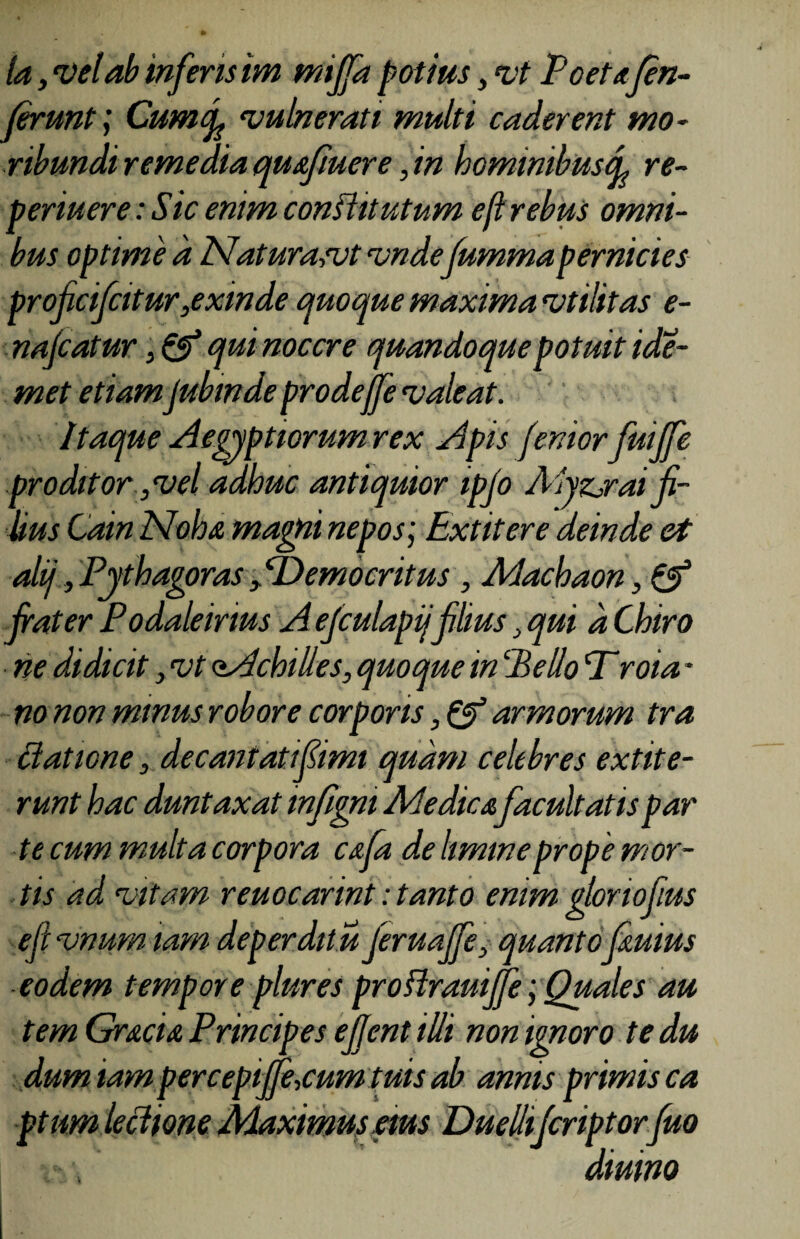 la, vel ab inferis im miſſa potius, vt Poetæ ſen-
ſerunt; Cumq; vulnerati multi caderent mo-
ribundi remedia quæſiuere, in hominibusq; re-
periuere: Sic enim conſtitutum eſt rebus omni-
bus optimè à Natura, vt vnde ſumma pernicies
proficiſcitur, exinde quoque maxima vtilitas e-
naſcatur, & qui noccre quandoque potuit idē-
met etiam ſubinde prodeſſe valeat.
Itaque Aegyptiorum rex Apis ſenior fuiſſe
proditor, vel adhuc antiquior ipſo Myzrai fi-
lius Cain Nohæ magni nepos; Extitere deinde et
alij, Pythagoras, Democritus, Machaon, &
frater Podaleirius Aeſculapij filius, qui à Chiro
ne didicit, vt Achilles, quoque in Bello Troia-
no non minus robore corporis, & armorum tra
ctatione, decantatiſſimi quàm celebres extite-
runt hac duntaxat inſigni Medicæ facultatis par
te cum multa corpora cæſa de limine propè mor-
tis ad vitam reuocarint: tanto enim glorioſius
eſt vnum iam deperditū ſeruaſſe, quanto ſæuius
eodem tempore plures proſtrauiſſe; Quales au
tem Græciæ Principes eſſent illi non ignoro te du
dum iam percepiſſe, cum tuis ab annis primis ca
ptum lectione Maximus eius Duelli ſcriptor ſuo
diuino